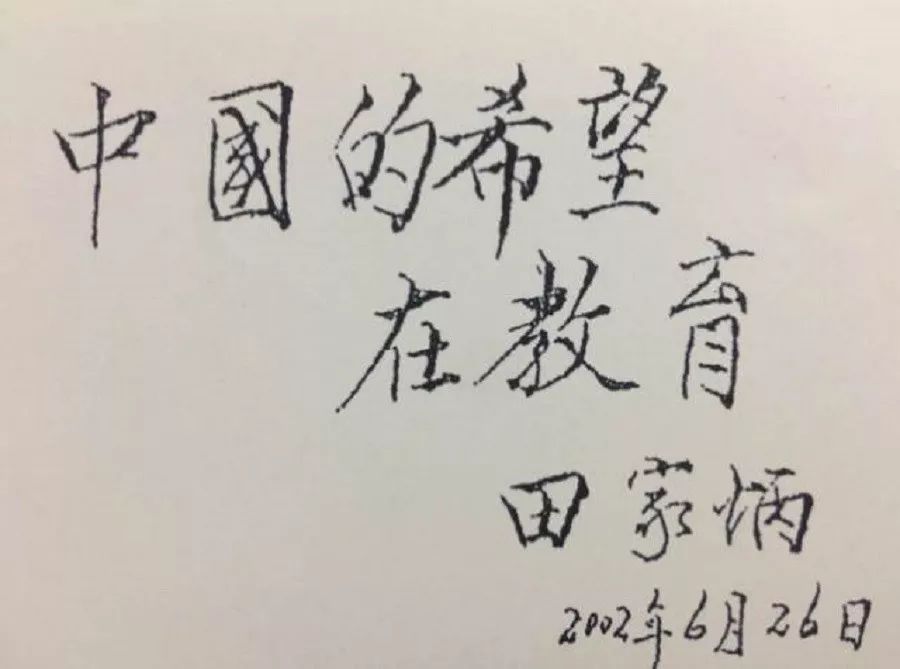 中國的希望
在教育
田家炳
2002年6月26日